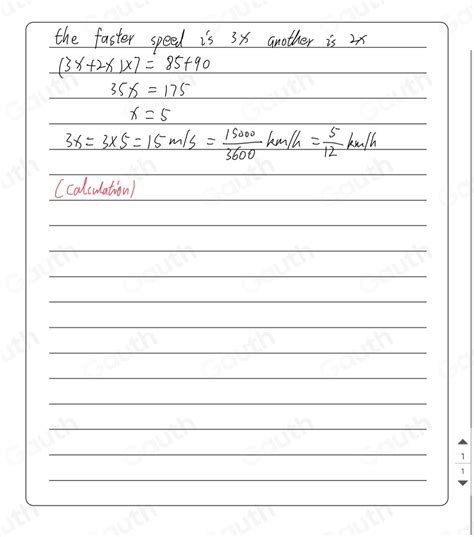 the faster speed is 3x another is 2x
(3x+2x)x7 = 85+90
35x = 175
x = 5
3x = 3x5 = 15 m/s = 15000/3600 km/h = 5/12 km/h
(Calculation)
1
1